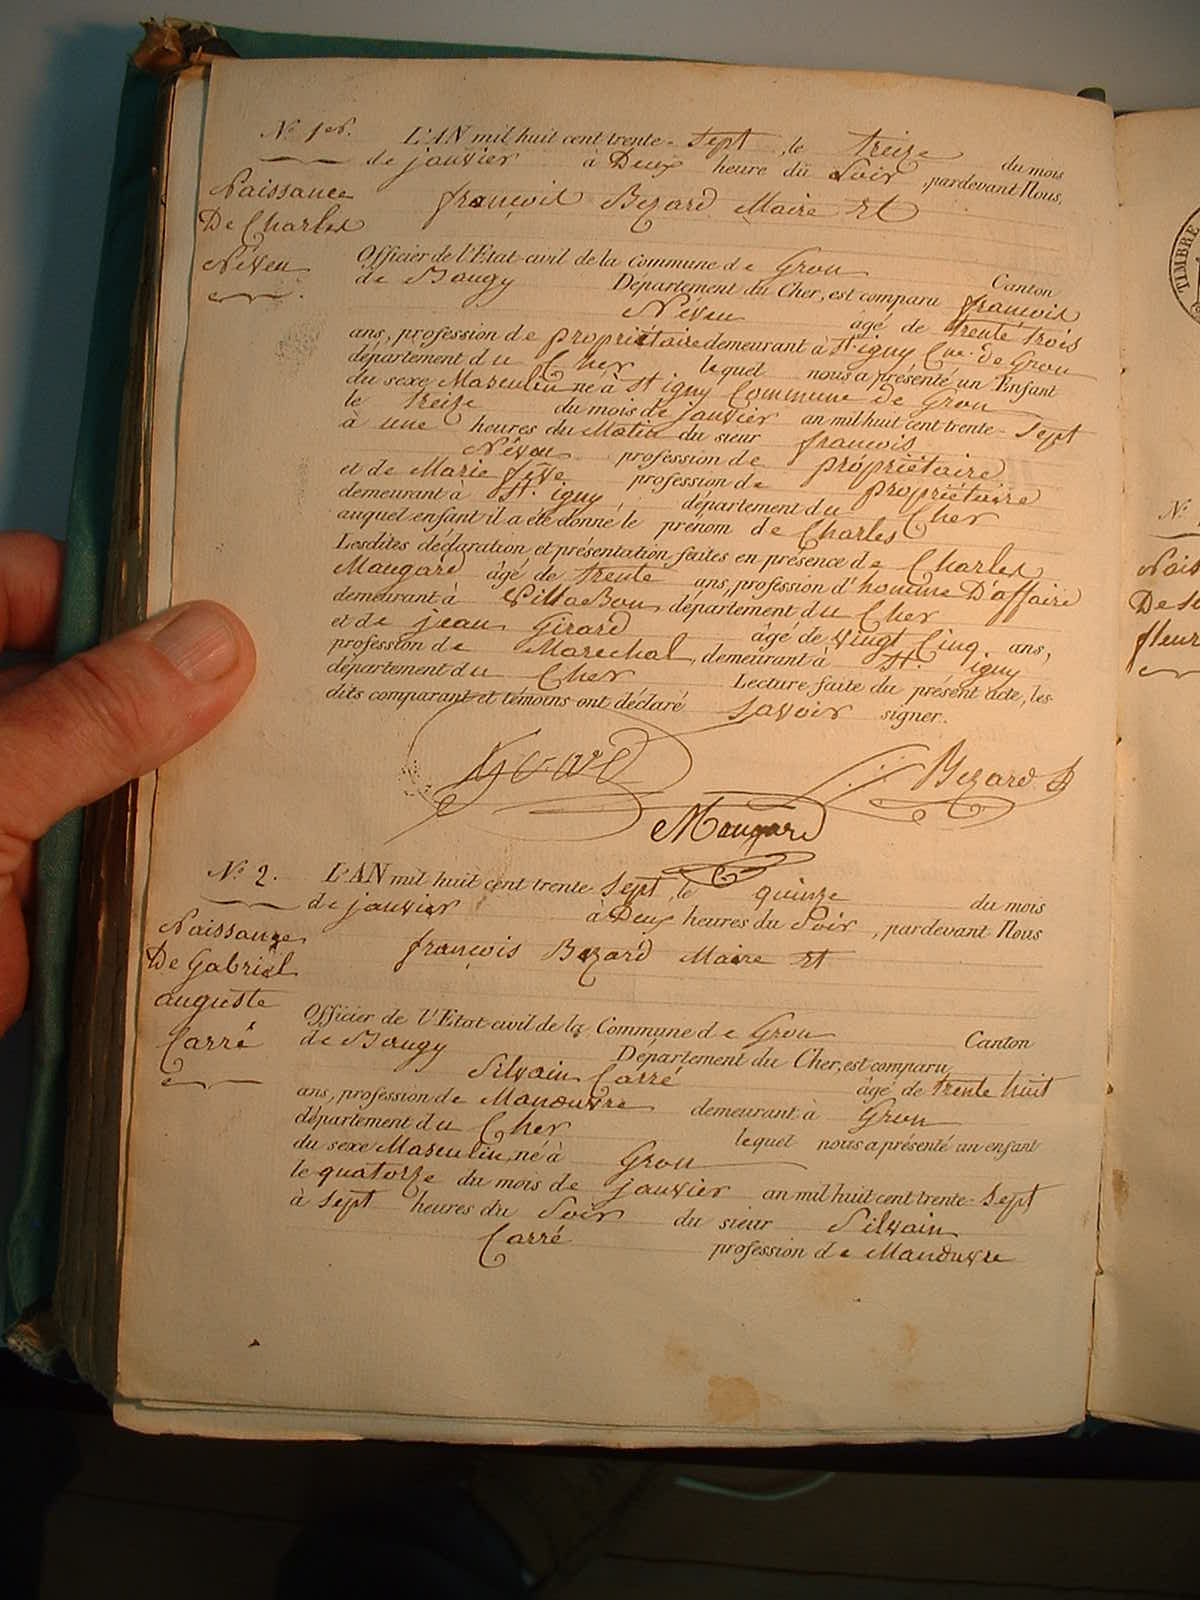 N° 1er.
Naissance
De Charles
Néveu
L'AN mil huit cent trente-sept, le treize du mois
de janvier à Deux heure du Soir, pardevant Nous,
françois Bezard Maire Et
Officier de l'Etat civil de la Commune de Gron Canton
de Baugy Département du Cher, est comparu françois
Néveu âgé de trente trois
ans, profession de propriétaire demeurant à St. igny Cne. de Gron
département du Cher lequel nous a présenté un Enfant
du sexe Masculin né à St igny Commune de Gron
le treize du mois de janvier an mil huit cent trente-sept
à une heures du Matin du sieur françois
Néveu profession de propriétaire
et de Marie profession de propriétaire
demeurant à St. igny département du Cher
auquel enfant il a été donné le prénom de Charles
Lesdites déclaration et présentation faites en présence de Charles
Maugard âgé de trente ans, profession d'homme D'affaire
demeurant à VillaBon département du Cher
et de jean Girard âgé de vingt Cinq ans,
profession de Marechal, demeurant à St. igny
département du Cher Lecture faite du présent acte, les
dits comparant et témoins ont déclaré savoir signer.
Girard
Bezard
Maugard
N° 2.
Naissance
De Gabriel
auguste
Carré
L'AN mil huit cent trente sept, le quinze du mois
de janvier à Deux heures du Soir, pardevant Nous
françois Bezard Maire Et
Officier de l'Etat civil de la Commune de Gron Canton
de Baugy Département du Cher, est comparu,
Silvain Carré âgé de trente huit
ans, profession de Manœuvre demeurant à Gron
département du Cher lequel nous a présenté un enfant
du sexe Masculin, né à Gron
le quatorze du mois de janvier an mil huit cent trente-sept
à sept heures du Soir du sieur Silvain
Carré profession de Manœuvre
TIMBRE
N°